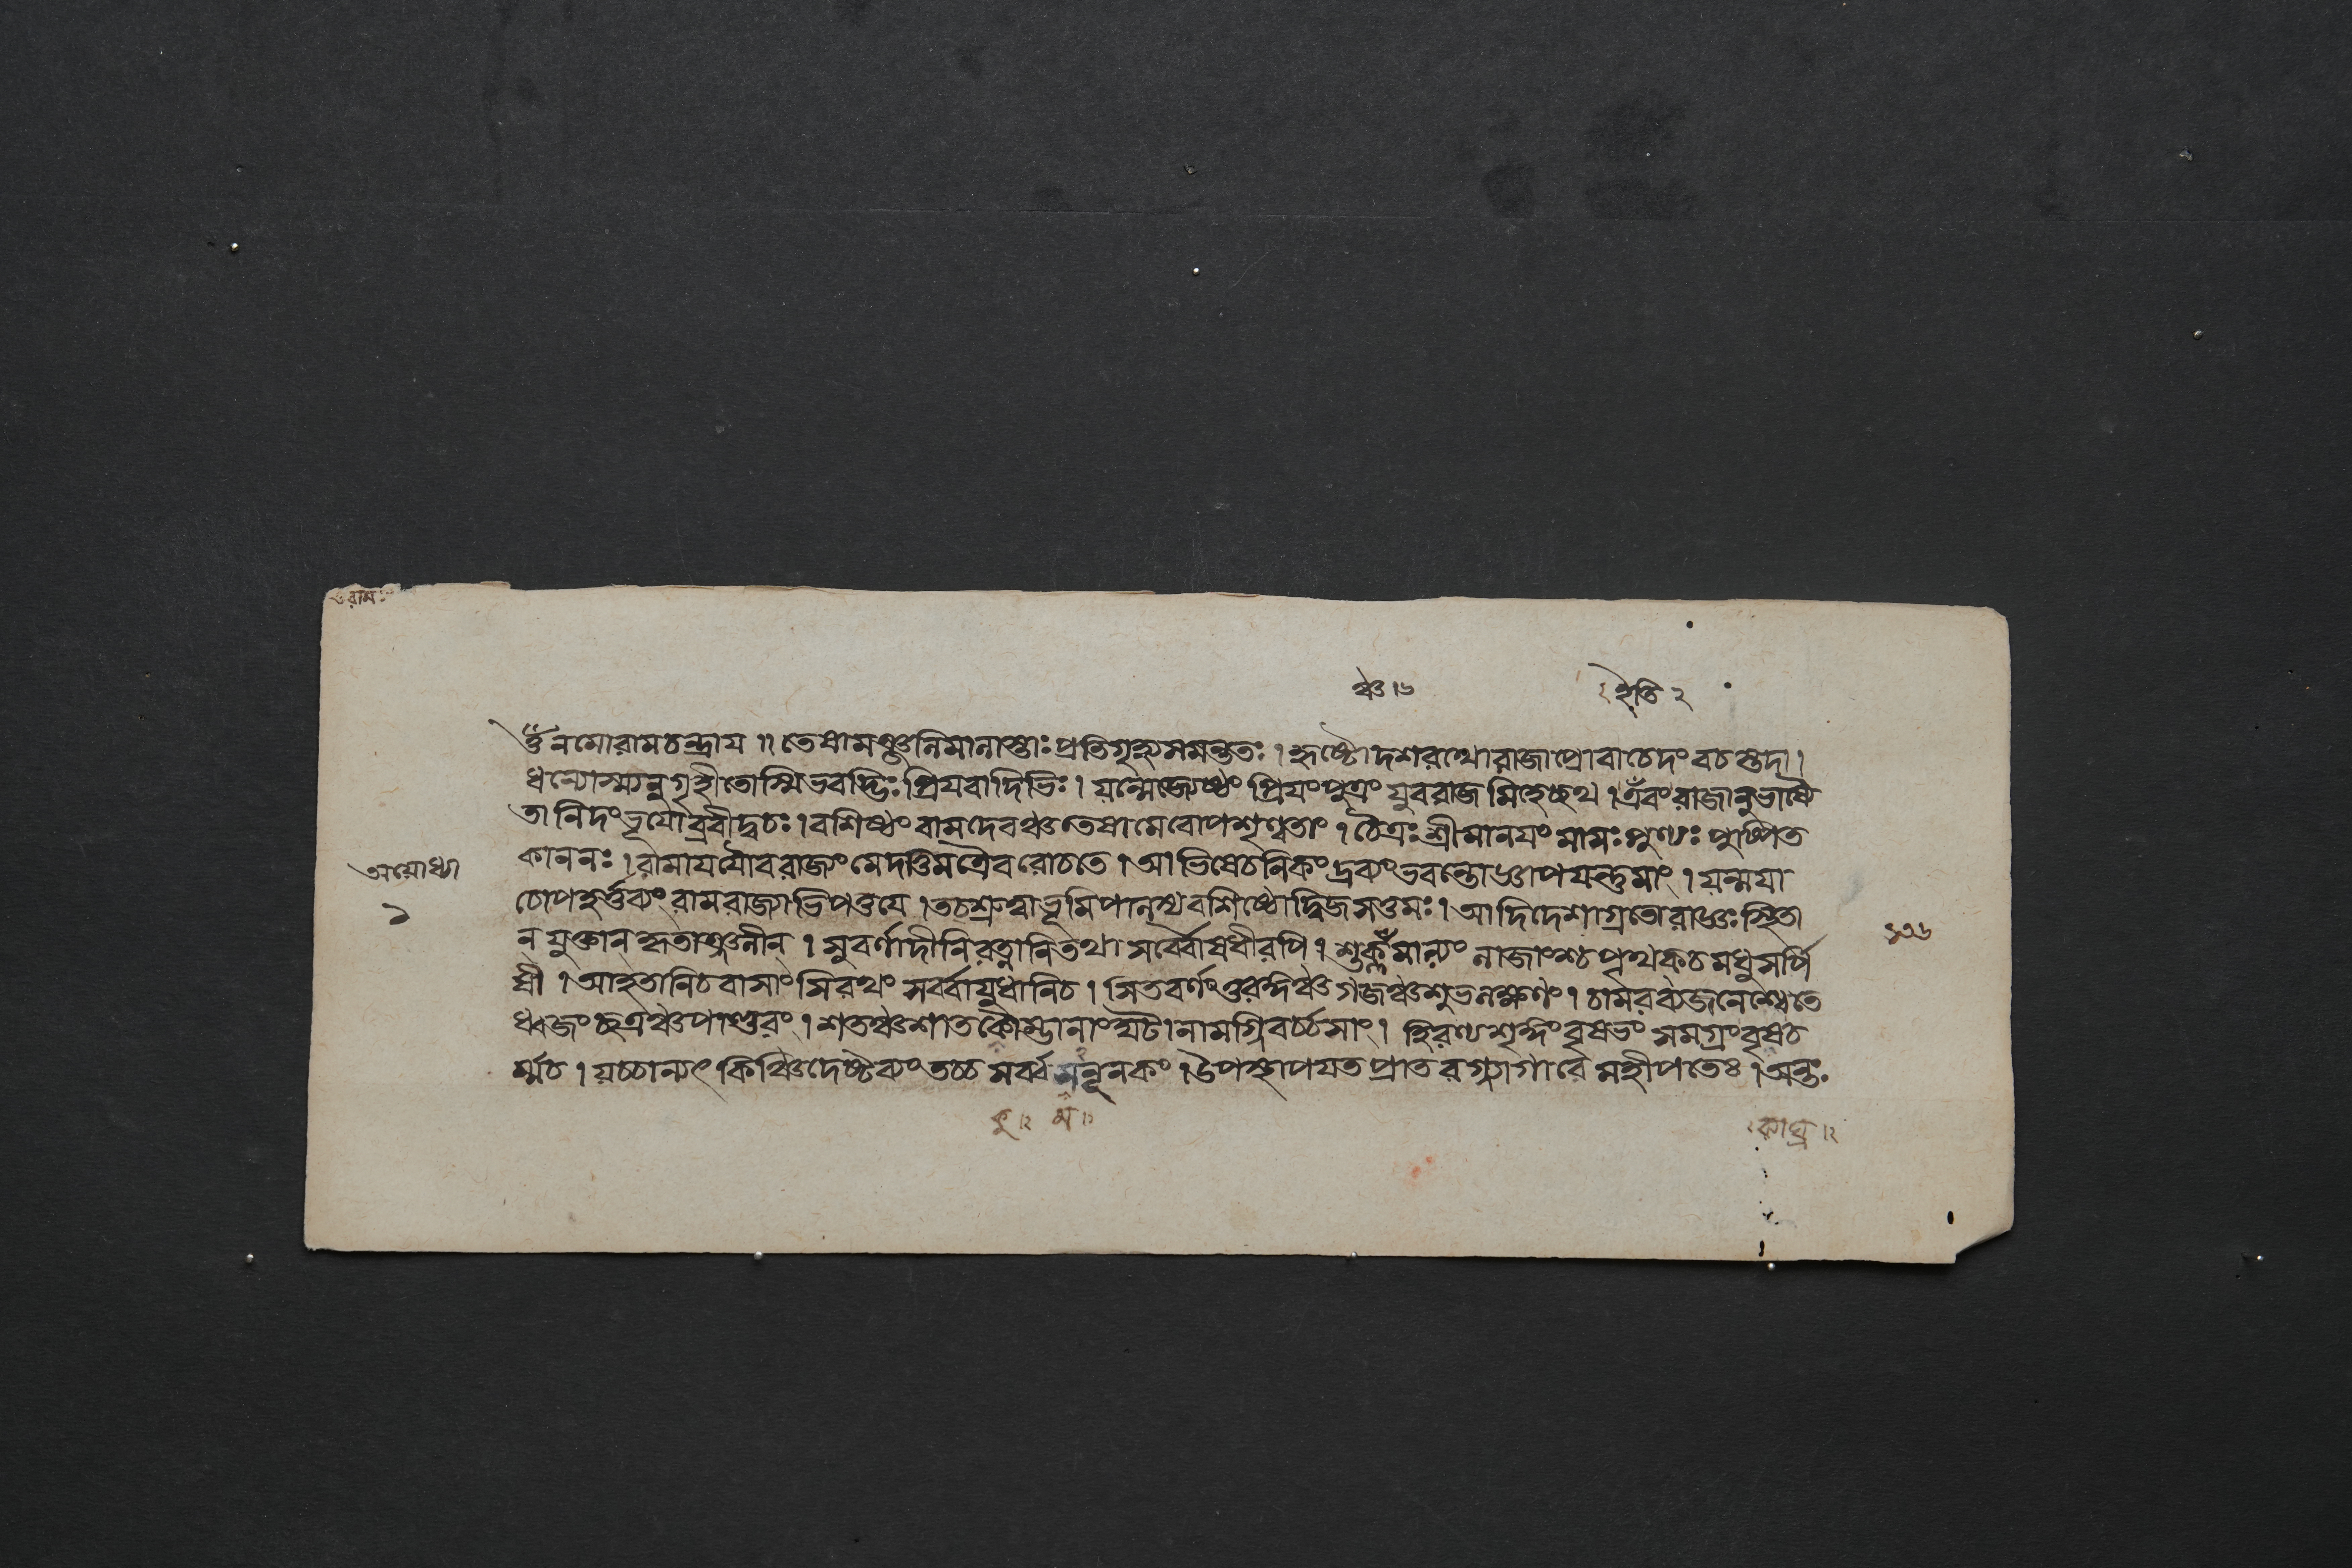 রাম
ঞ্চ।৬
ওঁনমোরামচন্দ্রায ॥ তেষামঞ্জলিমালাস্তাঃ প্রতিগৃহ্যসমন্ততঃ । হৃষ্টোদশরথোরাজাপ্রোবাচেদং বচস্তদা ।
ধন্যোস্ম্যনুগৃহীতোস্মিভবদ্ভিঃ প্রিযবাদিভিঃ । যন্মেজ্যেষ্ঠং প্রিযংপুত্রং যুবরাজমিহেচ্ছথ । এবংরাজানুভাষ্যৈ
তানিদংভূযোব্রবীদ্বচঃ । বশিষ্ঠং বামদেবঞ্চতেষামেবোপশৃণ্বতাং । চৈত্রঃ শ্রীমানযং মাসঃ পুণ্যঃ পুষ্পিত
কাননঃ । রামাযযৌবরাজ্যং মেদত্তুমত্রৈবরোচতে । আভিষেচনিকং দ্রব্যংভবন্তোজ্ঞাপযন্তুমাং । যন্মযা
অযোধ্যা
১
চোপহর্ত্তব্যং রামরাজ্যাভিপত্তযে । তচশ্রুত্বাভূমিপালস্থবশিষ্ঠোদ্বিজসত্তমঃ । আদিদেশাগ্রতোরাজ্ঞঃ স্থিতা
ন্ যুক্তান্ কৃতাঞ্জলীন্ । সুবর্ণাদীনিরত্নানিতথা সর্ব্বৌষধীরপি । শুক্লঁমাল্যং লাজাংশ্চ পৃথক্চমধুসর্পি
ষী । আহতানিচবাসাংসিরথং সর্ব্বাযুধানিচ । সিতবর্ণংতুরঙ্গঞ্চ গজঞ্চশুভলক্ষণং । চামরব্যজনেশ্বেতে
ধ্বজং ছত্রঞ্চপাণ্ডুরং । শতঞ্চশাতকৌম্ভানাংঘটানামগ্নিবর্চ্চসাং । হিরণ্যশৃঙ্গিং বৃষভং সমগ্রংবৃষচ
র্ম্মচ । যচ্চান্যৎ কিঞ্চিদেষ্টব্যং তচ্চ সর্ব্বমন্নূনকং । উপস্থাপযতপ্রাতরগ্ন্যাগারে মহীপতেঃ । অন্তঃ
কু।২ ম।১